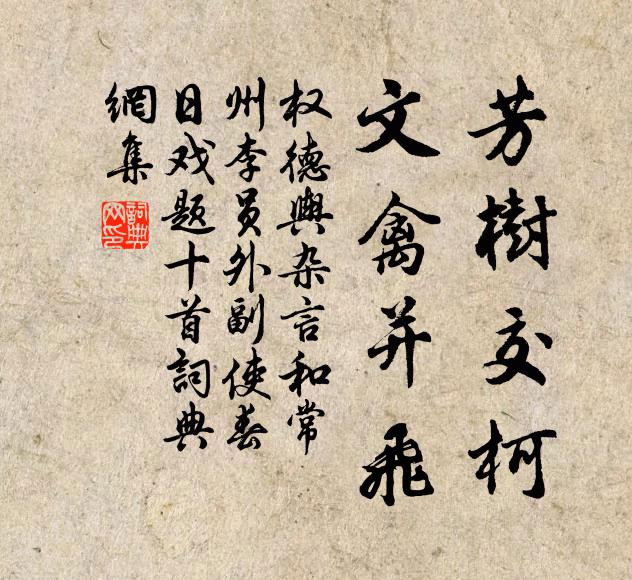 芳樹交柯
文禽并飛
权德輿杂言和常
州李員外副使春
日戏題十首詞典
網集
詞典網印